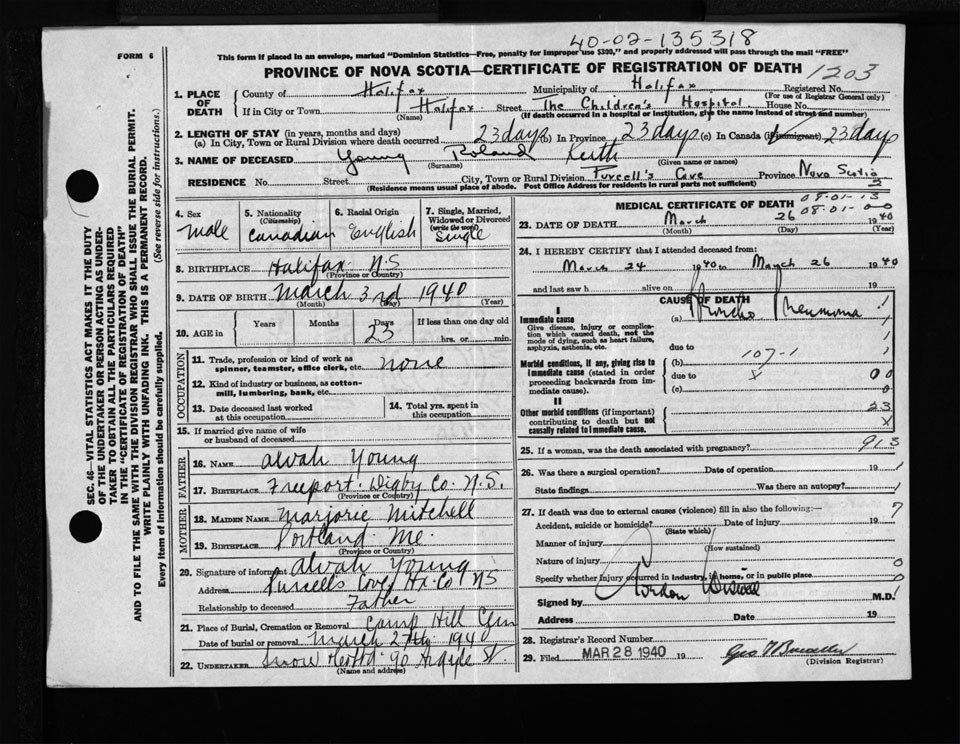 40-02-135318
FORM 6
This form if placed in an envelope, marked "Dominion Statistics—Free, penalty for improper use $300," and properly addressed will pass through the mail "FREE"
PROVINCE OF NOVA SCOTIA—CERTIFICATE OF REGISTRATION OF DEATH
1203
1. PLACE OF DEATH
County of Halifax Municipality of Halifax Registered No.
(For use of Registrar General only)
If in City or Town Halifax Street The Children's Hospital House No.
(Name) (If death occurred in a hospital or institution, give the name instead of street and number)
2. LENGTH OF STAY (in years, months and days)
(a) In City, Town or Rural Division where death occurred 23 days (b) In Province 23 days (c) In Canada (if immigrant) 23 days
3. NAME OF DECEASED Young Roland Keith
(Surname) (Given name or names)
RESIDENCE No. Street City, Town or Rural Division Purcell's Cove Province Nova Scotia
(Residence means usual place of abode. Post Office Address for residents in rural parts not sufficient)
2
SEC. 46—VITAL STATISTICS ACT MAKES IT THE DUTY
OF THE UNDERTAKER OR PERSON ACTING AS UNDER-
TAKER TO OBTAIN ALL THE PARTICULARS REQUIRED
IN THE "CERTIFICATE OF REGISTRATION OF DEATH"
AND TO FILE THE SAME WITH THE DIVISION REGISTRAR WHO SHALL ISSUE THE BURIAL PERMIT.
WRITE PLAINLY WITH UNFADING INK. THIS IS A PERMANENT RECORD.
Every item of information should be carefully supplied. (See reverse side for instructions.)
4. Sex
Male
5. Nationality
(Citizenship)
Canadian
6. Racial Origin
English
7. Single, Married,
Widowed or Divorced
(write the word)
Single
8. BIRTHPLACE Halifax N.S
(Province or Country)
9. DATE OF BIRTH March 3rd 1940
(Month) (Day) (Year)
10. AGE in
Years Months Days If less than one day old
23 hrs. or min.
OCCUPATION
11. Trade, profession or kind of work as
spinner, teamster, office clerk, etc. none
12. Kind of industry or business, as cotton-
mill, lumbering, bank, etc.
13. Date deceased last worked
at this occupation
14. Total yrs. spent in
this occupation
15. If married give name of wife
or husband of deceased
FATHER
16. NAME Alvah Young
17. BIRTHPLACE Freeport Digby Co. N.S.
(Province or Country)
MOTHER
18. MAIDEN NAME Marjorie Mitchell
19. BIRTHPLACE Portland Me.
(Province or Country)
20. Signature of informant Alvah Young
Address Purcells Cove Hx Co NS
Relationship to deceased Father
21. Place of Burial, Cremation or Removal Camp Hill Cem
Date of burial or removal March 27th 1940
22. UNDERTAKER Snow 90 Argyle St.
(Name and address)
MEDICAL CERTIFICATE OF DEATH
08-01-13
08-01-00
23. DATE OF DEATH March 26 1940
(Month) (Day) (Year)
24. I HEREBY CERTIFY that I attended deceased from:
March 24 1940 to March 26 1940
and last saw h alive on 19
CAUSE OF DEATH
I
Immediate cause
Give disease, injury or complica-
tion which caused death, not the
mode of dying, such as heart failure,
asphyxia, asthenia, etc.
(a) Broncho Pneumonia
due to
Morbid conditions, if any, giving rise to
immediate cause (stated in order
proceeding backwards from im-
mediate cause).
(b) 107-1
due to X
(c)
II
Other morbid conditions (if important)
contributing to death but not
causally related to immediate cause.
1
1
1
00
0
23
X
25. If a woman, was the death associated with pregnancy? 913
26. Was there a surgical operation? Date of operation 19 1
State findings Was there an autopsy? 1
27. If death was due to external causes (violence) fill in also the following:—
Accident, suicide or homicide? Date of injury 19 7
(State which)
Manner of injury
(How sustained)
Nature of injury 0
Specify whether injury occurred in industry, in home, or in public place 0
Signed by Gordon M.D.
Address Date 19
28. Registrar's Record Number
29. Filed MAR 28 1940 19
(Division Registrar)